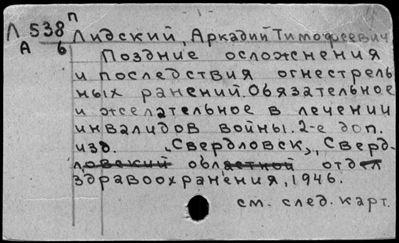 п
Л 538 Лидский, Аркадий Тимофеевич
А 6 Поздние осложнения
и последствия огнестрель
ных ранений. Обязательное
и желательное в лечении
инвалидов войны. 2-е доп.
изд. Свердловск, Сверд-
ловский областной отдел
здравоохранения, 1946.
см. след. карт.